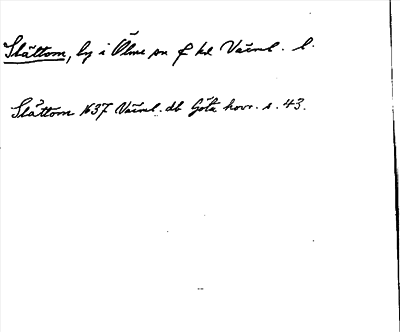 Slättom, by i Ölme sn f hd Värml. l.
Slåttom 1637 Värml. db Göta hovr. s. 43.